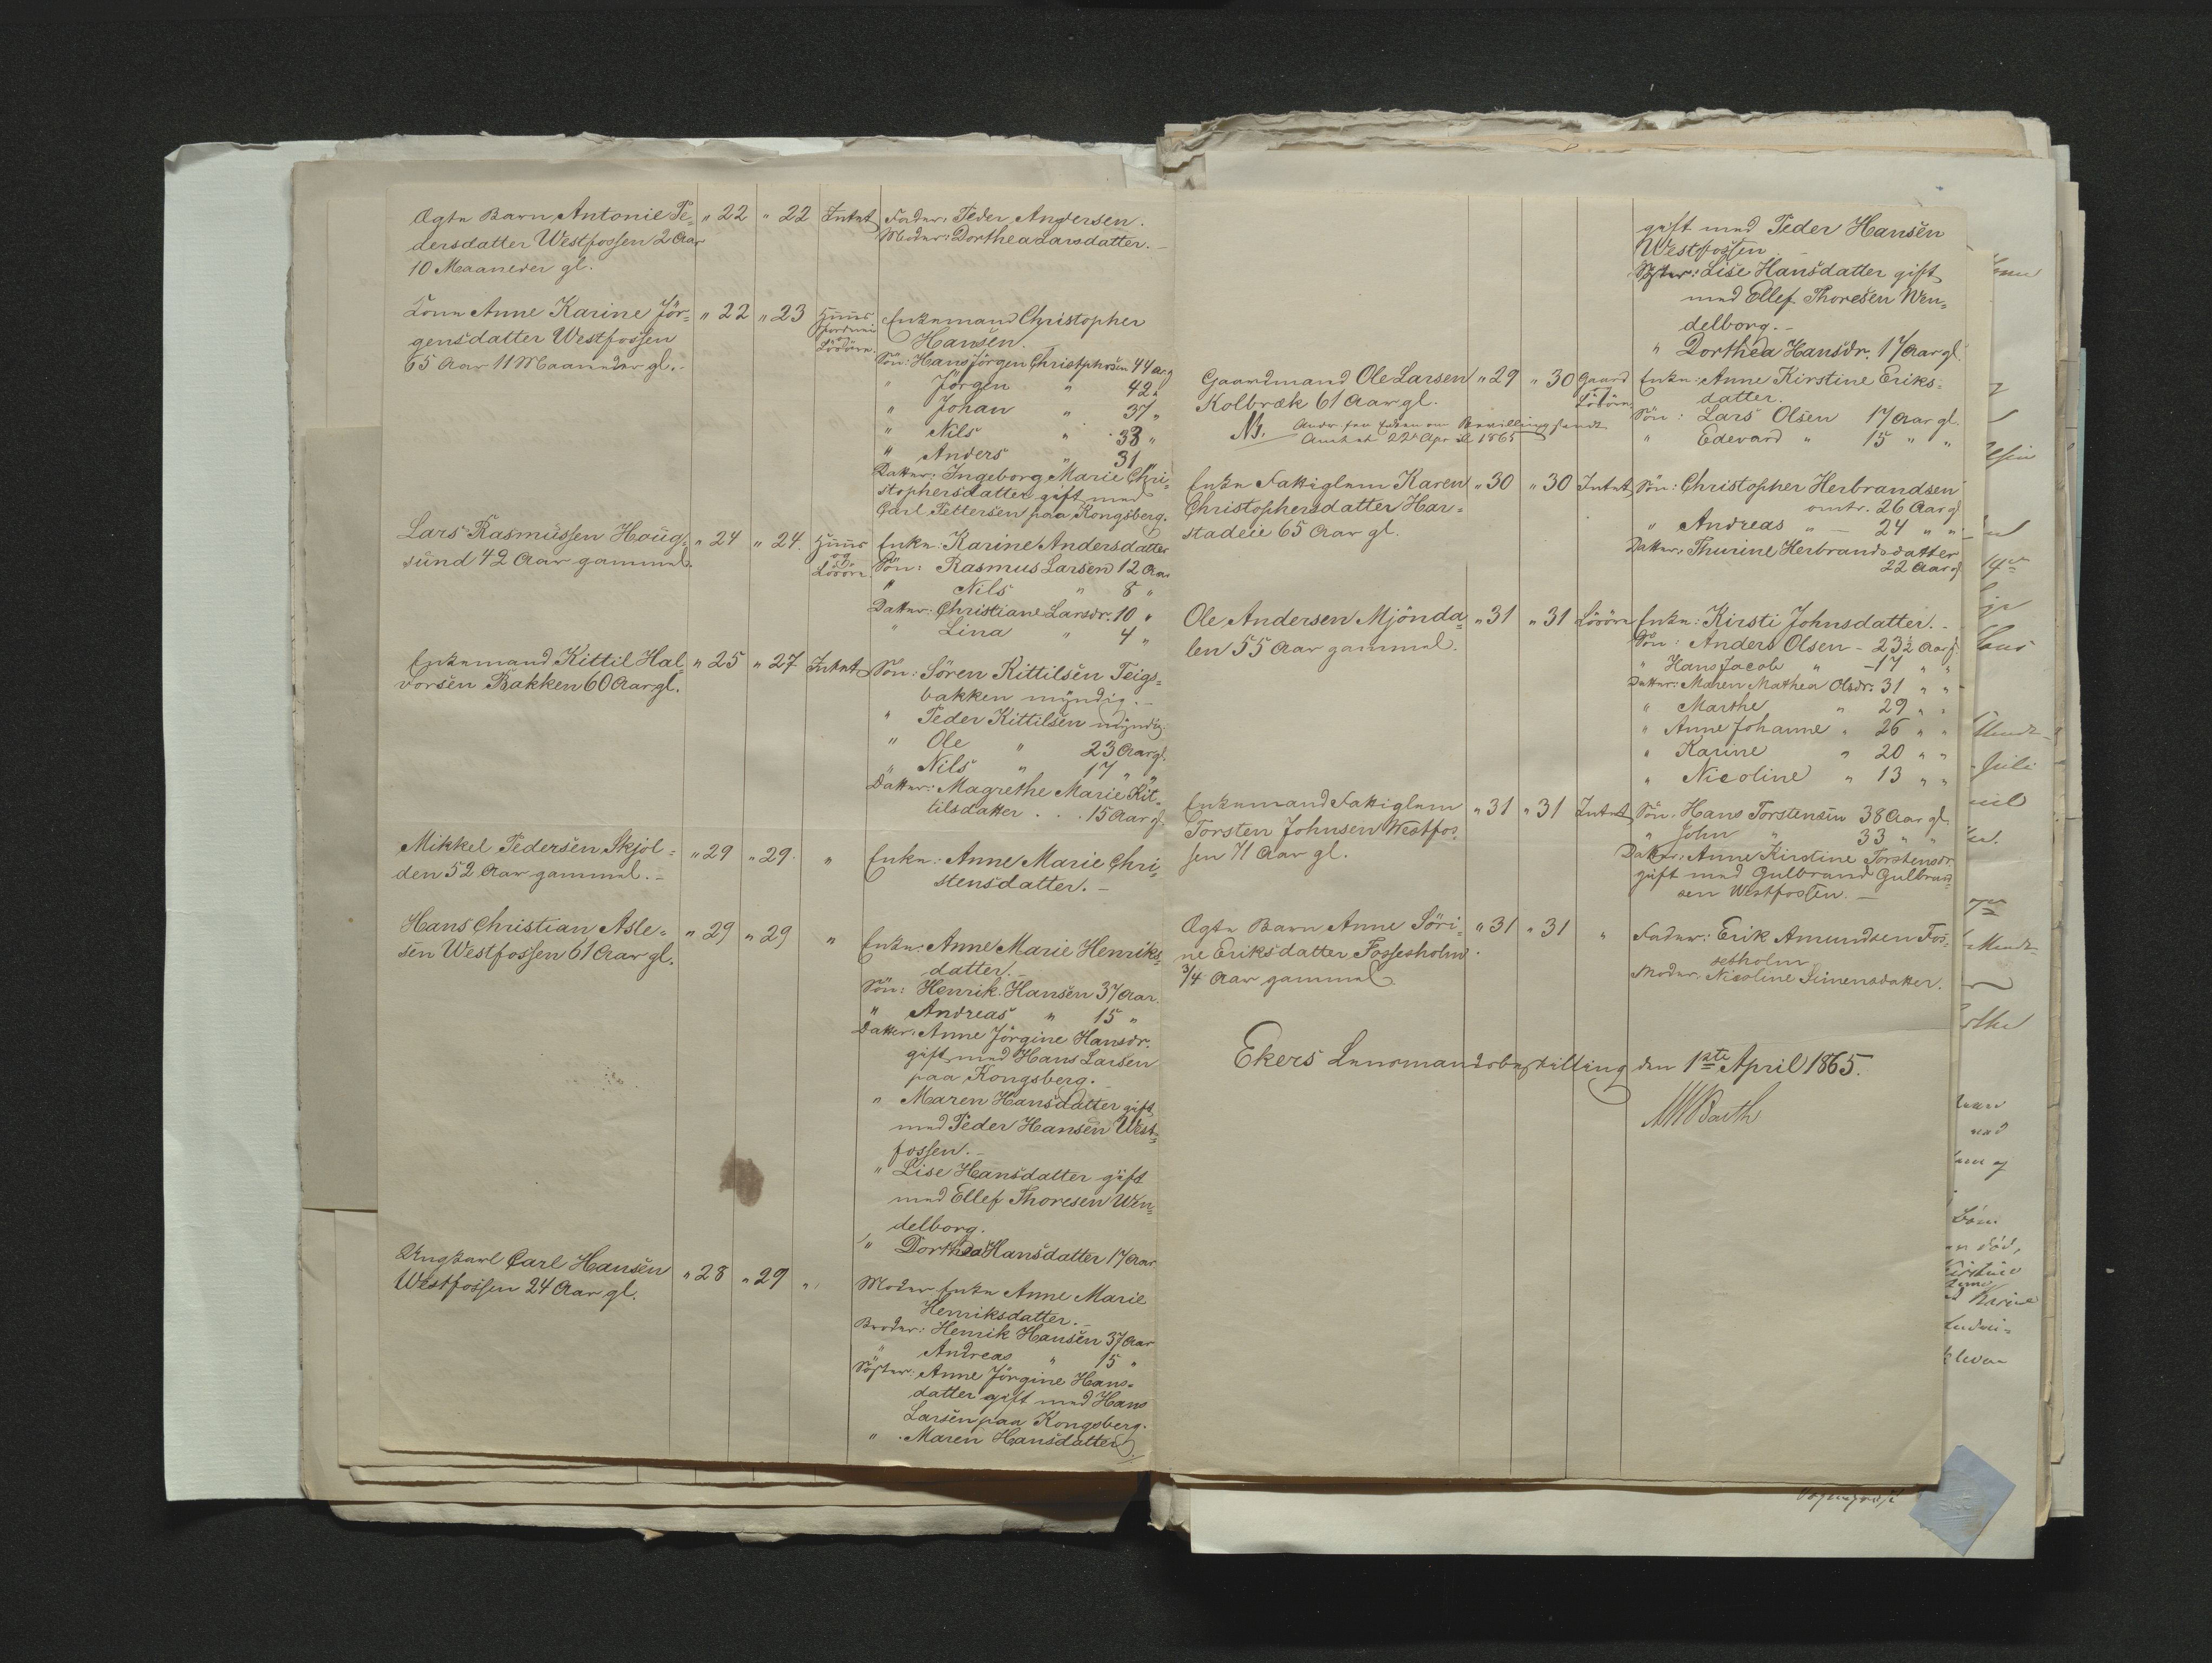 Ægte Barn Antonie Pe= " 22 " 22 Intet Fader: Peder Andersen.
dersdatter Westfossen 2 Aar Moder: Dorthea Larsdatter. –
10 Maaneder gl.
Kone Anne Karine Jör= " 22 " 23 Huus Enkemand Christopher
gensdatter Westfossen Hansen. –
65 Aar 11 Maaneder gl. Lösöre. Sön: Hans Jörgen Christphrsen 44 Aar g
" Jörgen " 42 "
" Johan " 37 "
" Nils " 33 "
" Anders " 31 "
Datter: Ingeborg Marie Chri=
stophersdatter gift med
Carl Pettersen paa Kongsberg.
Lars Rasmussen Houg= " 24 " 24 Huus Enke: Karine Andersdatter
sund 42 Aar gammel. og Lösöre. Sön: Rasmus Larsen 12 Aar
" Nils " 8 "
Datter: Christiane Larsdr. 10 "
" Lina " 4 "
Enkemand Kittil Hal= " 25 " 27 Intet Sön: Sören Kittilsen Teigs=
vorsen Bakken 60 Aar gl. bakken myndig. –
" Peder Kittilsen myndig.
" Ole " 23 Aar gl.
" Nils " 17 " "
Datter: Magrethe Marie Kit=
tilsdatter . . . 15 Aar g
Mikkel Pedersen Skjol= " 29 " 29 " Enke: Anne Marie Chri=
den 52 Aar gammel. – stensdatter. –
Hans Christian Asle= " 29 " 29 " Enke: Anne Marie Henriks=
sen Westfossen 61 Aar gl. datter. –
Sön: Henrik Hansen 37 Aar.
" Andreas " 15 "
Datter: Anne Jörgine Hansdr.
gift med Hans Larsen
paa Kongsberg. –
" Maren Hansdatter gift
med Peder Hansen West=
fossen. –
" Lise Hansdatter gift
med Ellef Thoresen Wen=
delborg.
" Dorthea Hansdatter 17 Aar
Ungkarl Carl Hansen " 28 " 29 " Moder Enke Anne Marie
Westfossen 24 Aar gl. Henriksdatter. –
Broder: Henrik Hansen 37 Aar
" Andreas " 15 "
Söster: Anne Jörgine Hans=
datter gift med Hans
Larsen paa Kongsberg.
" Maren Hansdatter
gift med Peder Hansen
Westfossen –
Söster: Lise Hansdatter gift
med Ellef Thoresen Wen=
delborg. –
" Dorthea Hansdr. 17 Aar gl.
Gaardmand Ole Larsen " 29 " 30 Gaard Enke: Anne Kirstine Eriks=
Kolbræk 61 Aar gl. Lösöre datter.
Sön: Lars Olsen 17 Aar gl.
NB. Bevilling sendt " Edevard " 15 " "
Amtet 22 April 1865
Enke Fattiglem Karen " 30 " 30 Intet Sön: Christopher Herbrandsen
Christophersdatter Har= omtr. 26 Aar g
stadeie 65 Aar gl. " Andreas " – 24 " "
Datter: Thurine Herbrandsdatter
22 Aar g
Ole Andersen Mjönda= " 31 " 31 Lösöre Enke: Kirsti Johnsdatter. –
len 55 Aar gammel. Sön: Anders Olsen – 23½ Aar g.
" Hans Jacob " – 17 " "
Datter: Maren Mathea Olsdr. 31 " "
" Marthe " 29 " "
" Anne Johanne " 26 " "
" Karine " 20 " "
" Nicoline " 13 " "
Enkemand Fattiglem " 31 " 31 Intet Sön: Hans Torstensen 38 Aar gl.
Torsten Johnsen Westfos= " John " 33 " "
sen 71 Aar gl. Datter: Anne Kirstine Torstensdr.
gift med Gulbrand Gulbrand=
sen Westfossen. –
Ægte Barn Anne Söri= " 31 " 31 " Fader: Erik Amundsen Fos=
ne Eriksdatter Fossesholm. sesholm
3/4 Aar gammel. Moder: Nicoline Simensdatter.
Ekers Lensmandsbestilling den 1ste April 1865.
MWBarth